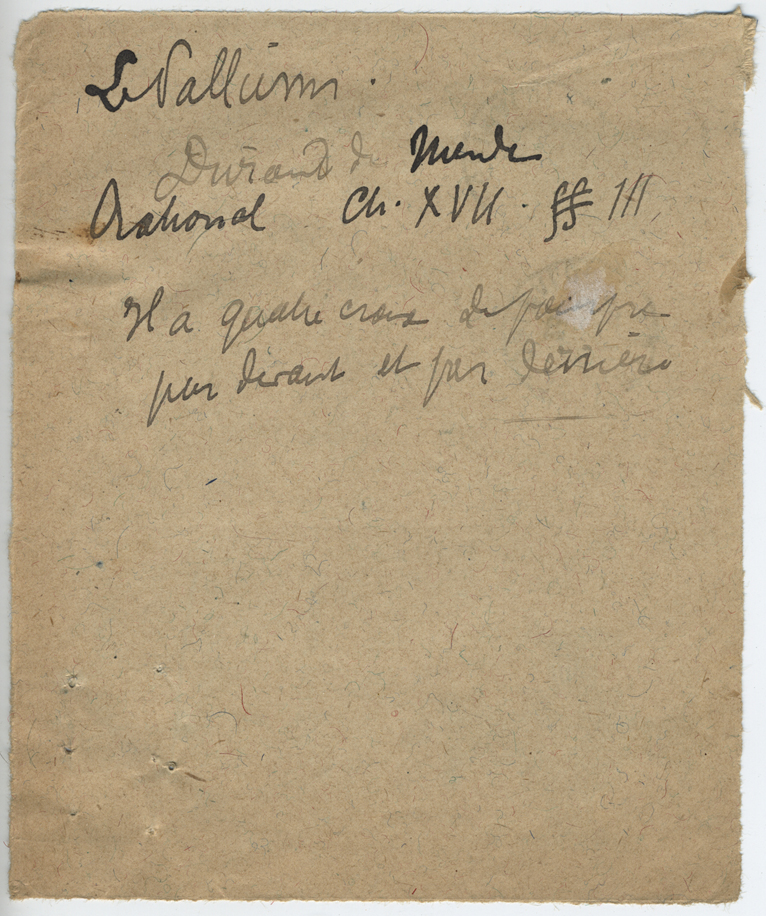 Le Pallium.
Durand de Mende
Rational Ch. XVII. §§ III
Il a quatre croix de pourpre
par devant et par derrière